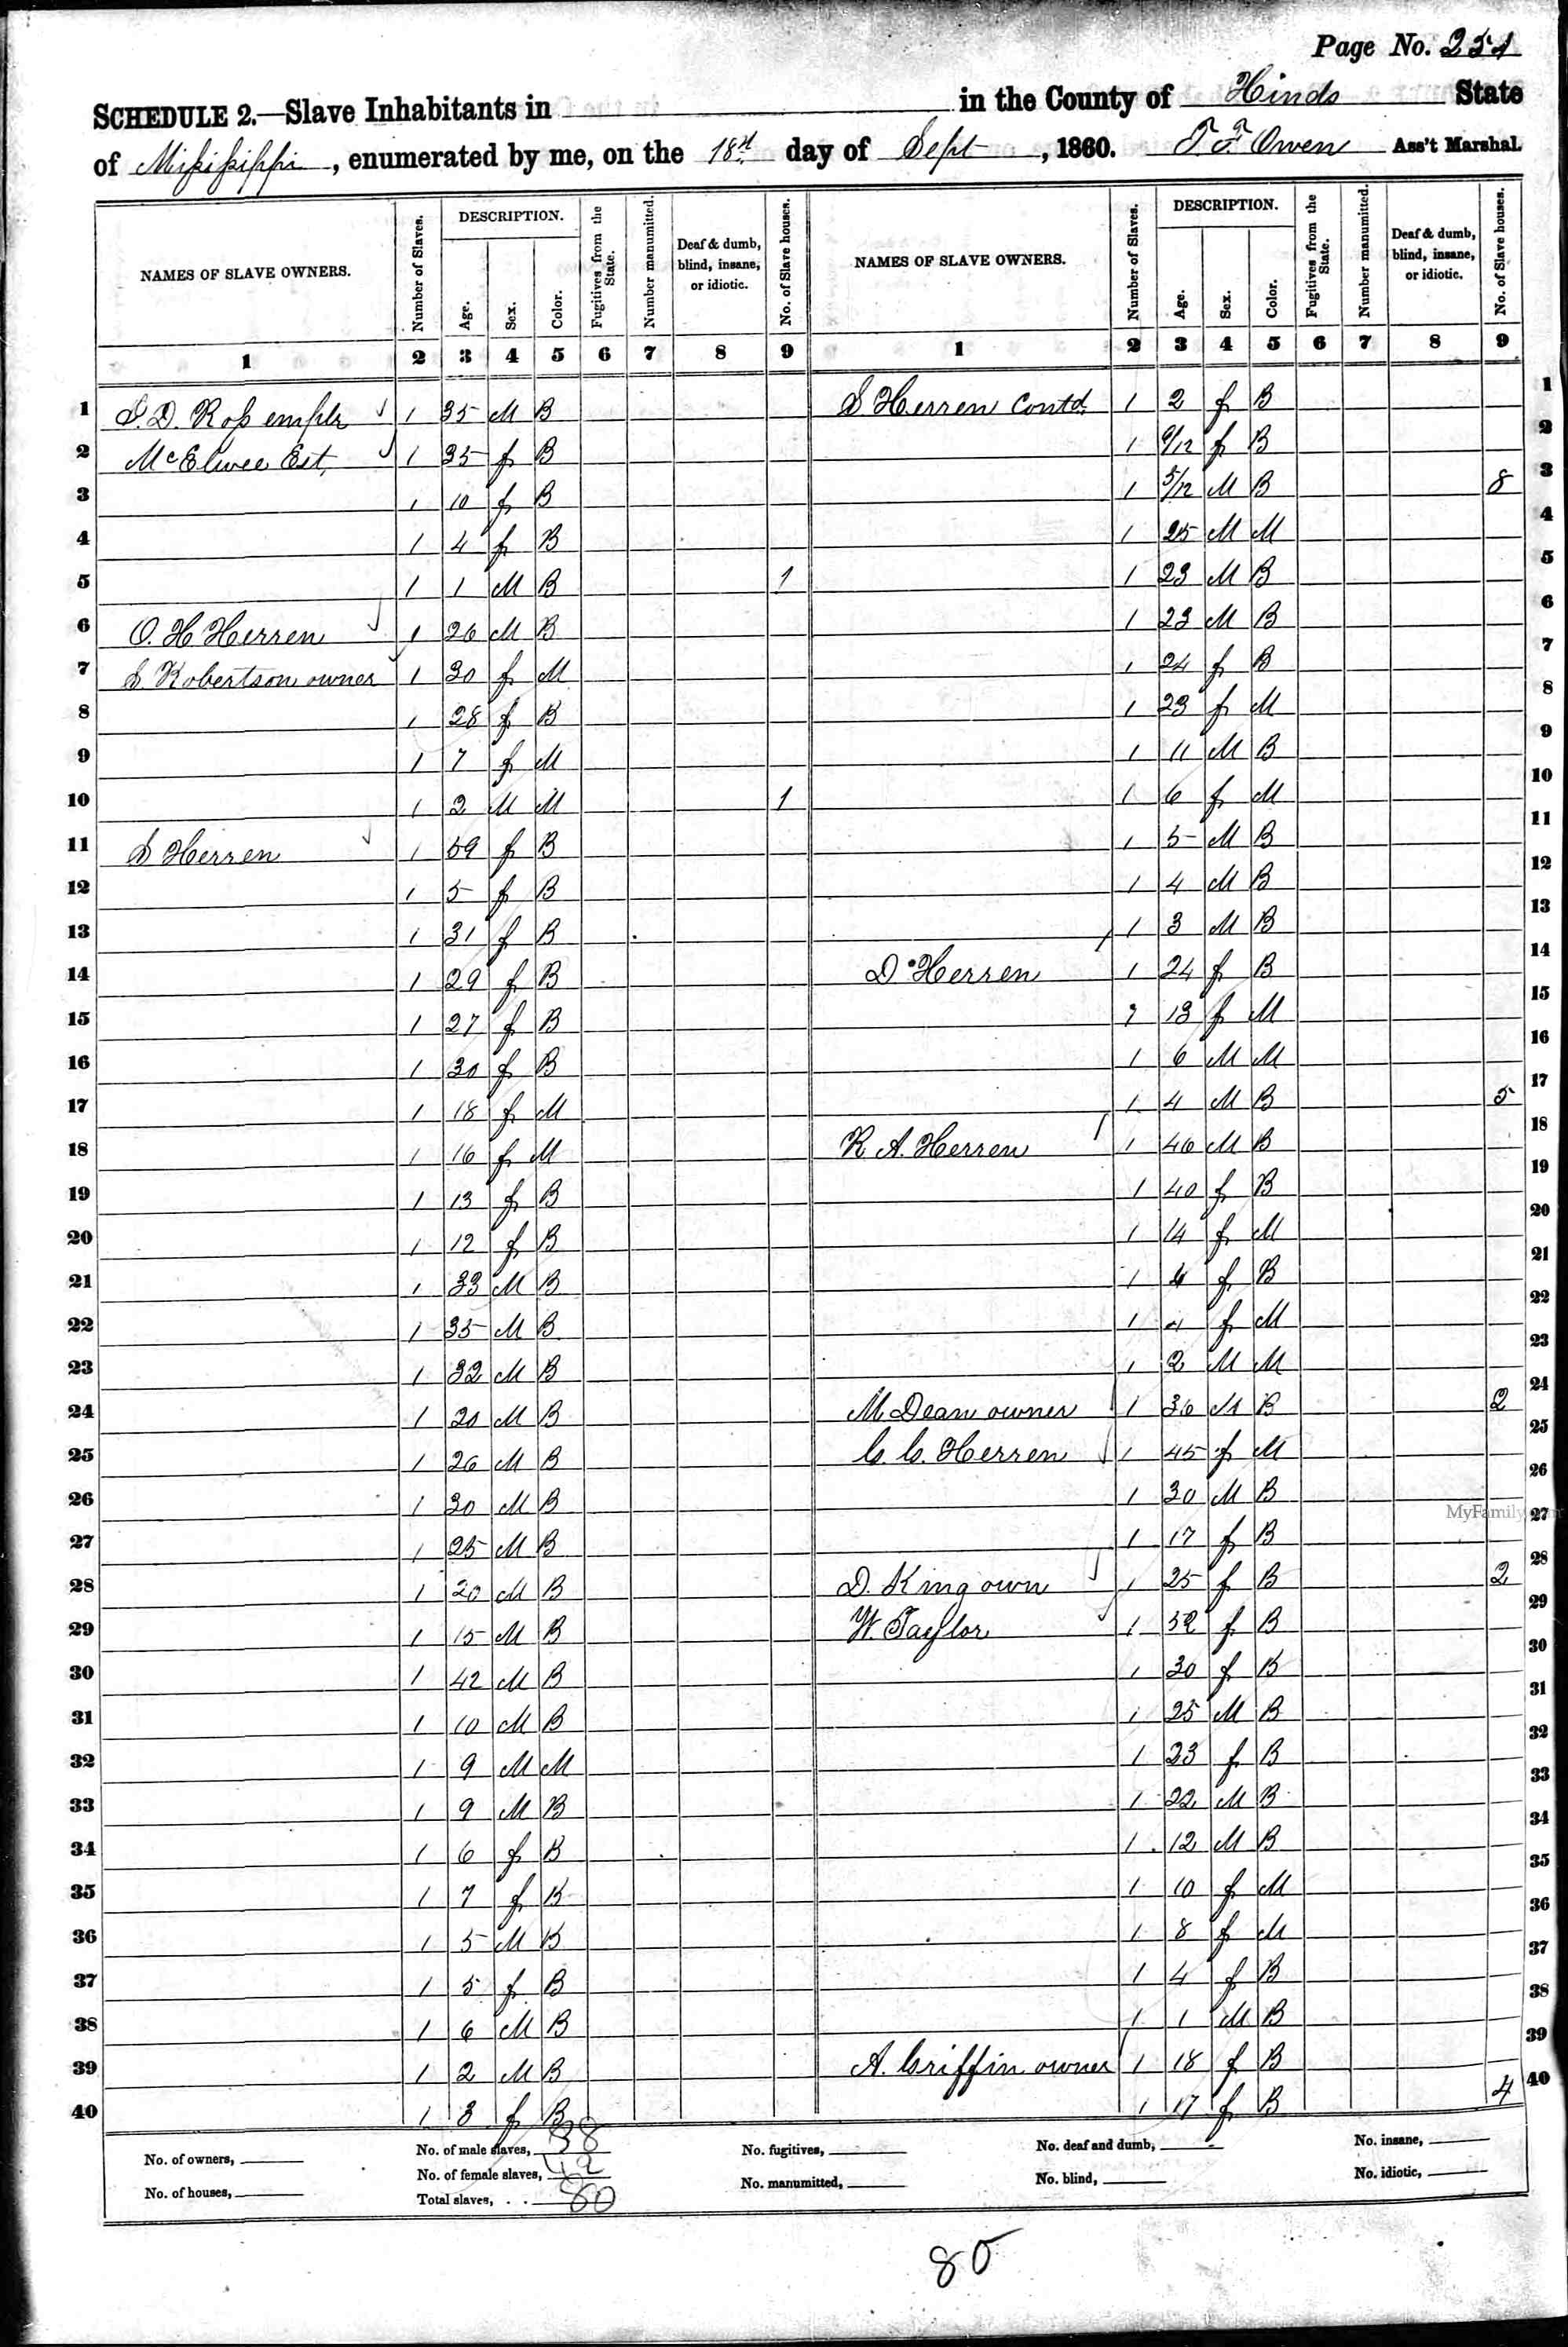 Page No. 251
SCHEDULE 2.—Slave Inhabitants in in the County of Hinds State
of Mississippi, enumerated by me, on the 18th day of Sept, 1860. T. F. Owen Ass't Marshal.
NAMES OF SLAVE OWNERS. Number of Slaves. DESCRIPTION. Age. Sex. Color. Fugitives from the State. Number manumitted. Deaf & dumb, blind, insane, or idiotic. No. of Slave houses. NAMES OF SLAVE OWNERS. Number of Slaves. DESCRIPTION. Age. Sex. Color. Fugitives from the State. Number manumitted. Deaf & dumb, blind, insane, or idiotic. No. of Slave houses.
1 2 3 4 5 6 7 8 9 1 2 3 4 5 6 7 8 9
1 S. D. Ross emplr 1 35 M B S Herren Contd. 1 2 f B 1
2 McElwee Est, 1 35 f B 1 9/12 f B 2
3 1 10 f B 1 5/12 M B 8 3
4 1 4 f B 1 25 M M 4
5 1 1 M B 1 1 23 M B 5
6 O. H Herren 1 26 M B 1 23 M B 6
7 S. Robertson owner 1 30 f M 1 24 f B 7
8 1 28 f B 1 23 f M 8
9 1 7 f M 1 11 M B 9
10 1 2 M M 1 1 6 f M 10
11 S Herren 1 59 f B 1 5 M B 11
12 1 5 f B 1 4 M B 12
13 1 31 f B 1 3 M B 13
14 1 29 f B D. Herren 1 24 f B 14
15 1 27 f B 1 13 f M 15
16 1 30 f B 1 6 M M 16
17 1 18 f M 1 4 M B 5 17
18 1 16 f M R. A. Herren 1 46 M B 18
19 1 13 f B 1 40 f B 19
20 1 12 f B 1 14 f M 20
21 1 33 M B 1 4 f B 21
22 1 35 M B 1 f M 22
23 1 32 M B 1 2 M M 23
24 1 20 M B M. Dean owner 1 36 M B 2 24
25 1 26 M B C. C. Herren 1 45 f M 25
26 1 30 M B 1 30 M B 26
27 1 25 M B 1 17 f B 27
28 1 20 M B D. King own 1 25 f B 2 28
29 1 15 M B W. Taylor 1 52 f B 29
30 1 42 M B 1 30 f B 30
31 1 10 M B 1 25 M B 31
32 1 9 M M 1 23 f B 32
33 1 9 M B 1 22 M B 33
34 1 6 f B 1 12 M B 34
35 1 7 f B 1 10 f M 35
36 1 5 M B 1 8 f M 36
37 1 5 f B 1 4 f B 37
38 1 6 M B 1 1 M B 38
39 1 2 M B A. Griffin owner 1 18 f B 39
40 1 3 f B 1 17 f B 4 40
MyFamily.com
No. of owners, No. of male slaves, 38 No. fugitives, No. deaf and dumb, No. insane,
No. of houses, No. of female slaves, 42 No. manumitted, No. blind, No. idiotic,
Total slaves, . . 80
80